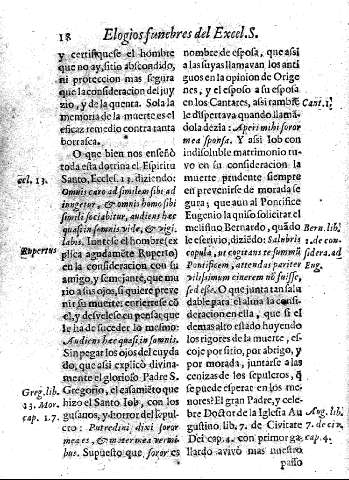 18 Elogios funebres del Excel. S.
y certifiquese el hombre
que no ay, sitio abscondido,
ni proteccion mas segura
que la consideracion del juy
zio, y de la quenta. Sola la
memoria de la muerte es el
eficaz remedio contra tanta
borrasca.
O que bien nos enseñò
toda esta dotrina el Espiritu
Santo, Eccles. 13. diziendo:
Omnis caro ad similem sibi ad
iungetur, & omnis homo sibi
simili sociabitur, audiens hæc
quasi in somnis vide, & vigi
labis. Iuntese el hombre (ex
plica agudamẽte Ruperto)
en la consideracion con su
amigo, y semejante, que mi
rio a sus ojos, si quiere preve
nir su muerte: coriersese cõ
el, y desvelese en pensar, que
le ha de suceder lo mesmo:
Audiens hæc quasi in somnis.
Sin pegar los ojos del cuyda
do, que assi explicò divina-
mente el glorioso Padre S.
Gregorio, el casamiẽto que
hizo el Santo Iob, con los
gusanos, y horror del sepul-
cro: Putredini, dixi soror
mea es, & mater mea vermi
bus. Supuesto que soror es
ccl. 13.
Rupertus
Greg. lib.
13. Mor.
cap. 17.
nombre de esposa, que assi
a las suyas llamavan los anti
guos en la opinion de Orige
nes, y el esposo a su esposa
en los Cantares, assi tambiẽ
le dispertava quando llamã-
dola dezia: Aperi mihi soror
mea sponsa. Y assi Iob con
indisoluble matrimonio tu-
vo en su consideracion la
muerte prudente siempre
en prevenirse de morada se
gura; que aun al Pontifice
Eugenio la quiso solicitar el
melifluo Bernardo, quãdo
le escrivio, diziẽdo: Salubris
copula, ut cogites te summũ
Pontificem, attendas pariter
vilissimum cinerem nõ fuisse,
sed esse. O que junta tan salu
dable para el alma la consi-
deracion en ella, que si el
demas alto estado huyendo
los rigores de la muerte, es-
coje por sitio, por abrigo, y
por morada, juntarse a las
cenizas de los sepulcros, q̃
se puede esperar en los me-
nores? El gran Padre, y cele-
bre Doctor de la Iglesia Au
gustino lib. 7. de Civitate
Dei cap. 4. con primor ga-
llardo avivò mas nuestro
passo
Cant. 1.
Bern. lib.
1. de con-
sidera. ad
Eug.
Aug. lib.
7. de civ.
cap. 4.